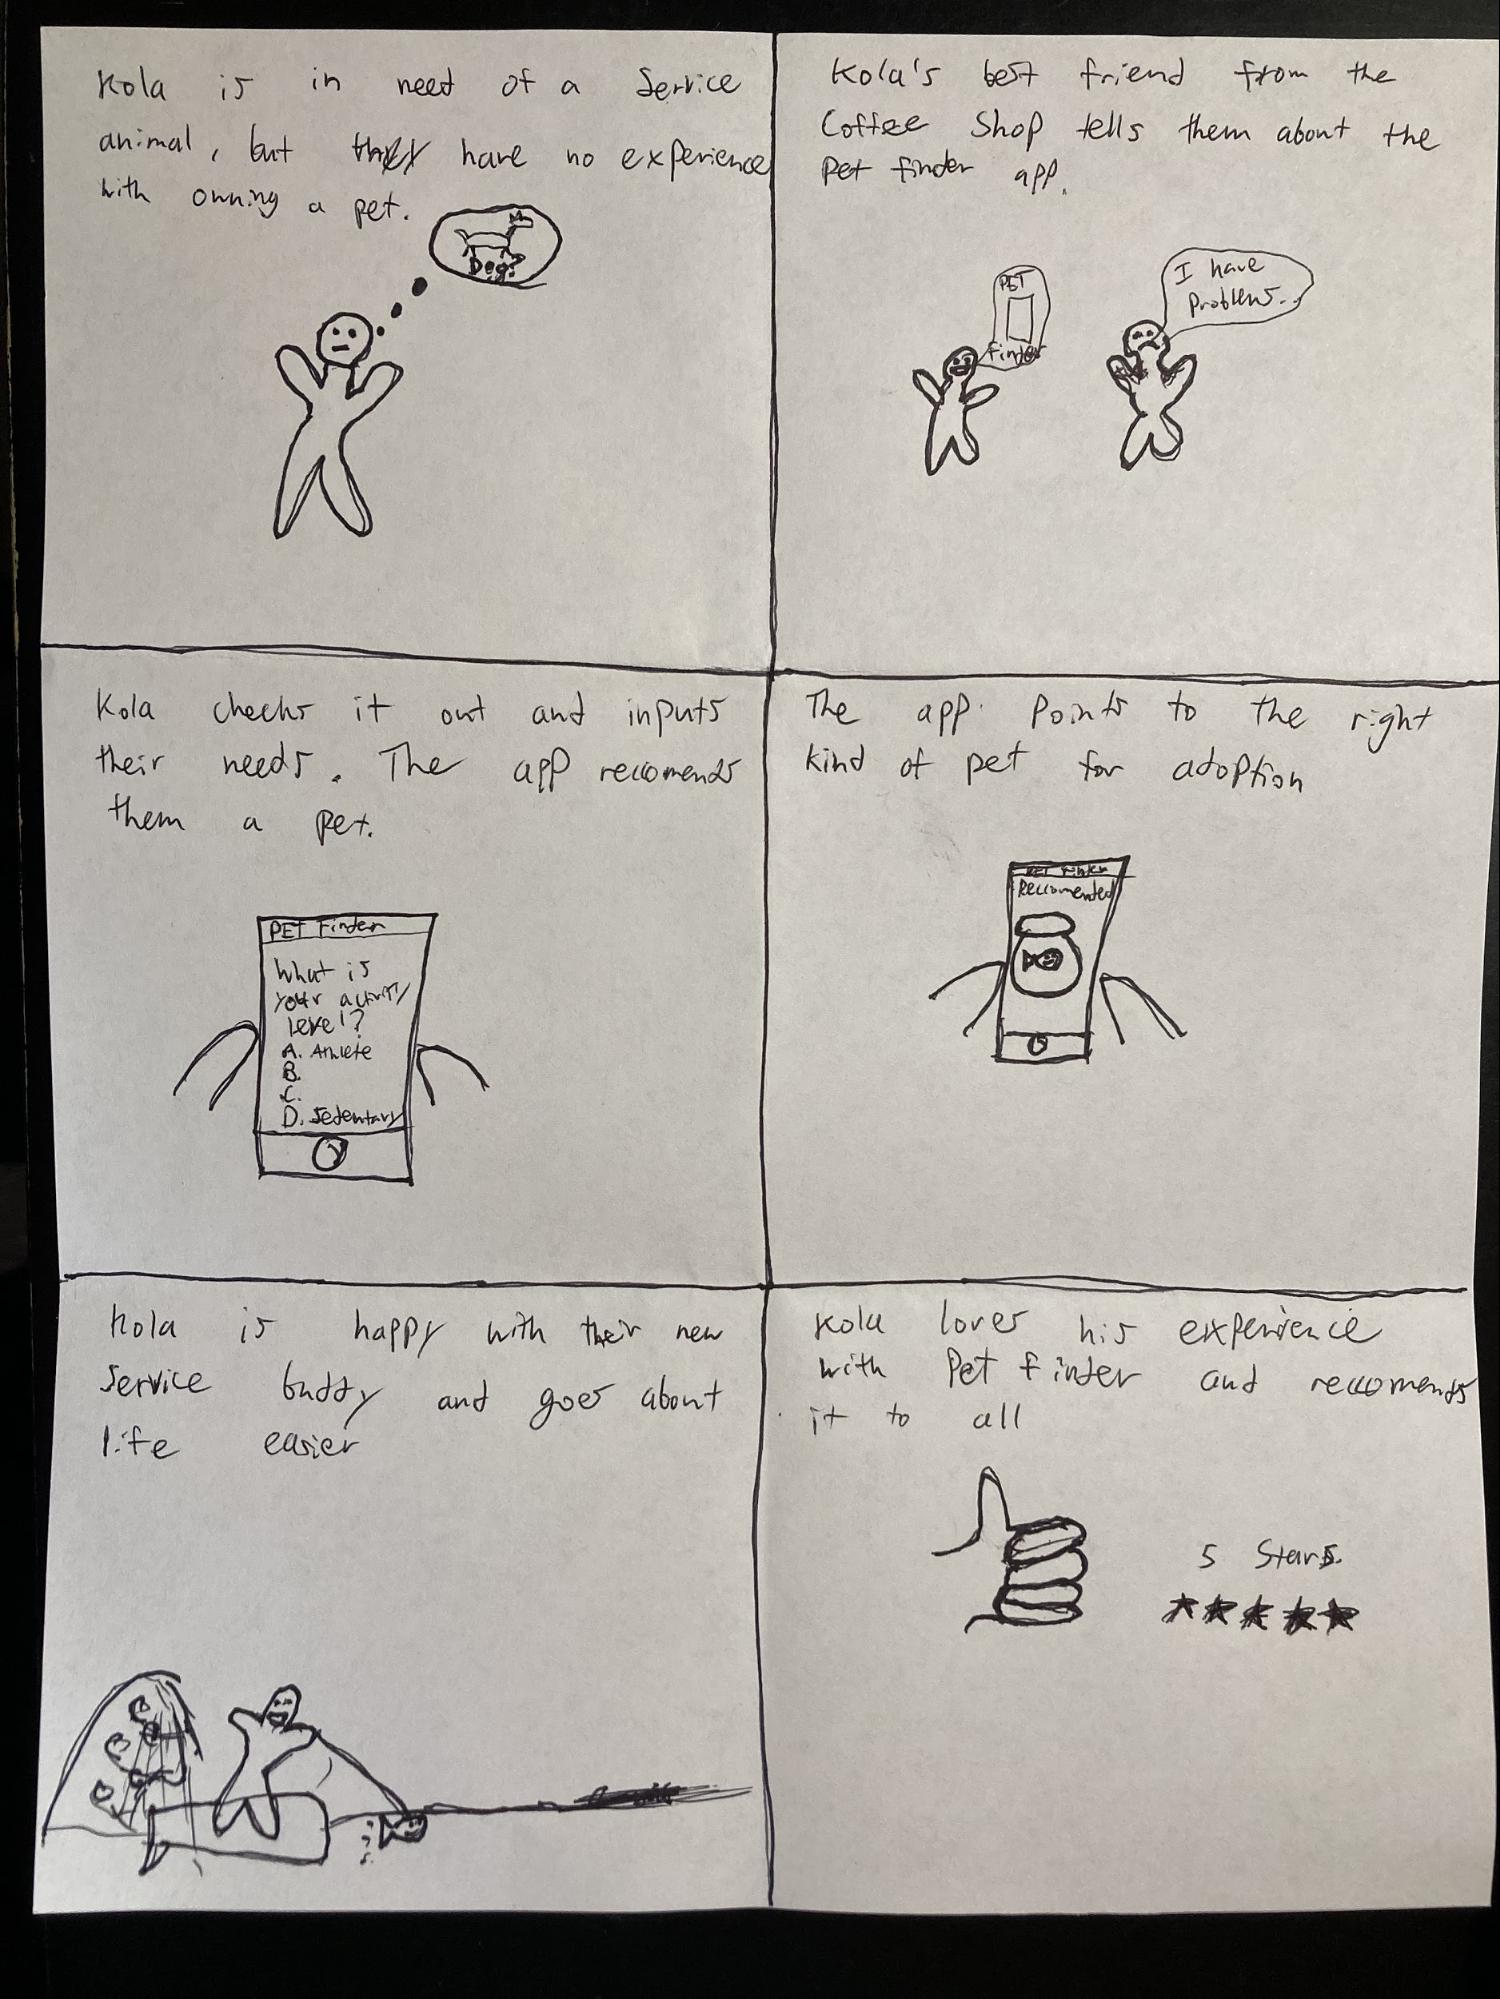 Kola is in need of a Service
animal, but they have no experience
with owning a pet.
Dog?
Kola's best friend from the
Coffee Shop tells them about the
Pet finder app.
PET
Finder
I have
problems..
Kola checks it out and inputs
their needs. The app reccomends
them a pet.
PET Finder
What is
your activity
level?
A. Athlete
B.
C.
D. Sedentary
The app points to the right
kind of pet for adoption
PET Finder
Reccomended
Kola is happy with their new
Service buddy and goes about
life easier
Kola loves his experience
with Pet finder and reccomends
it to all
5 Stars.